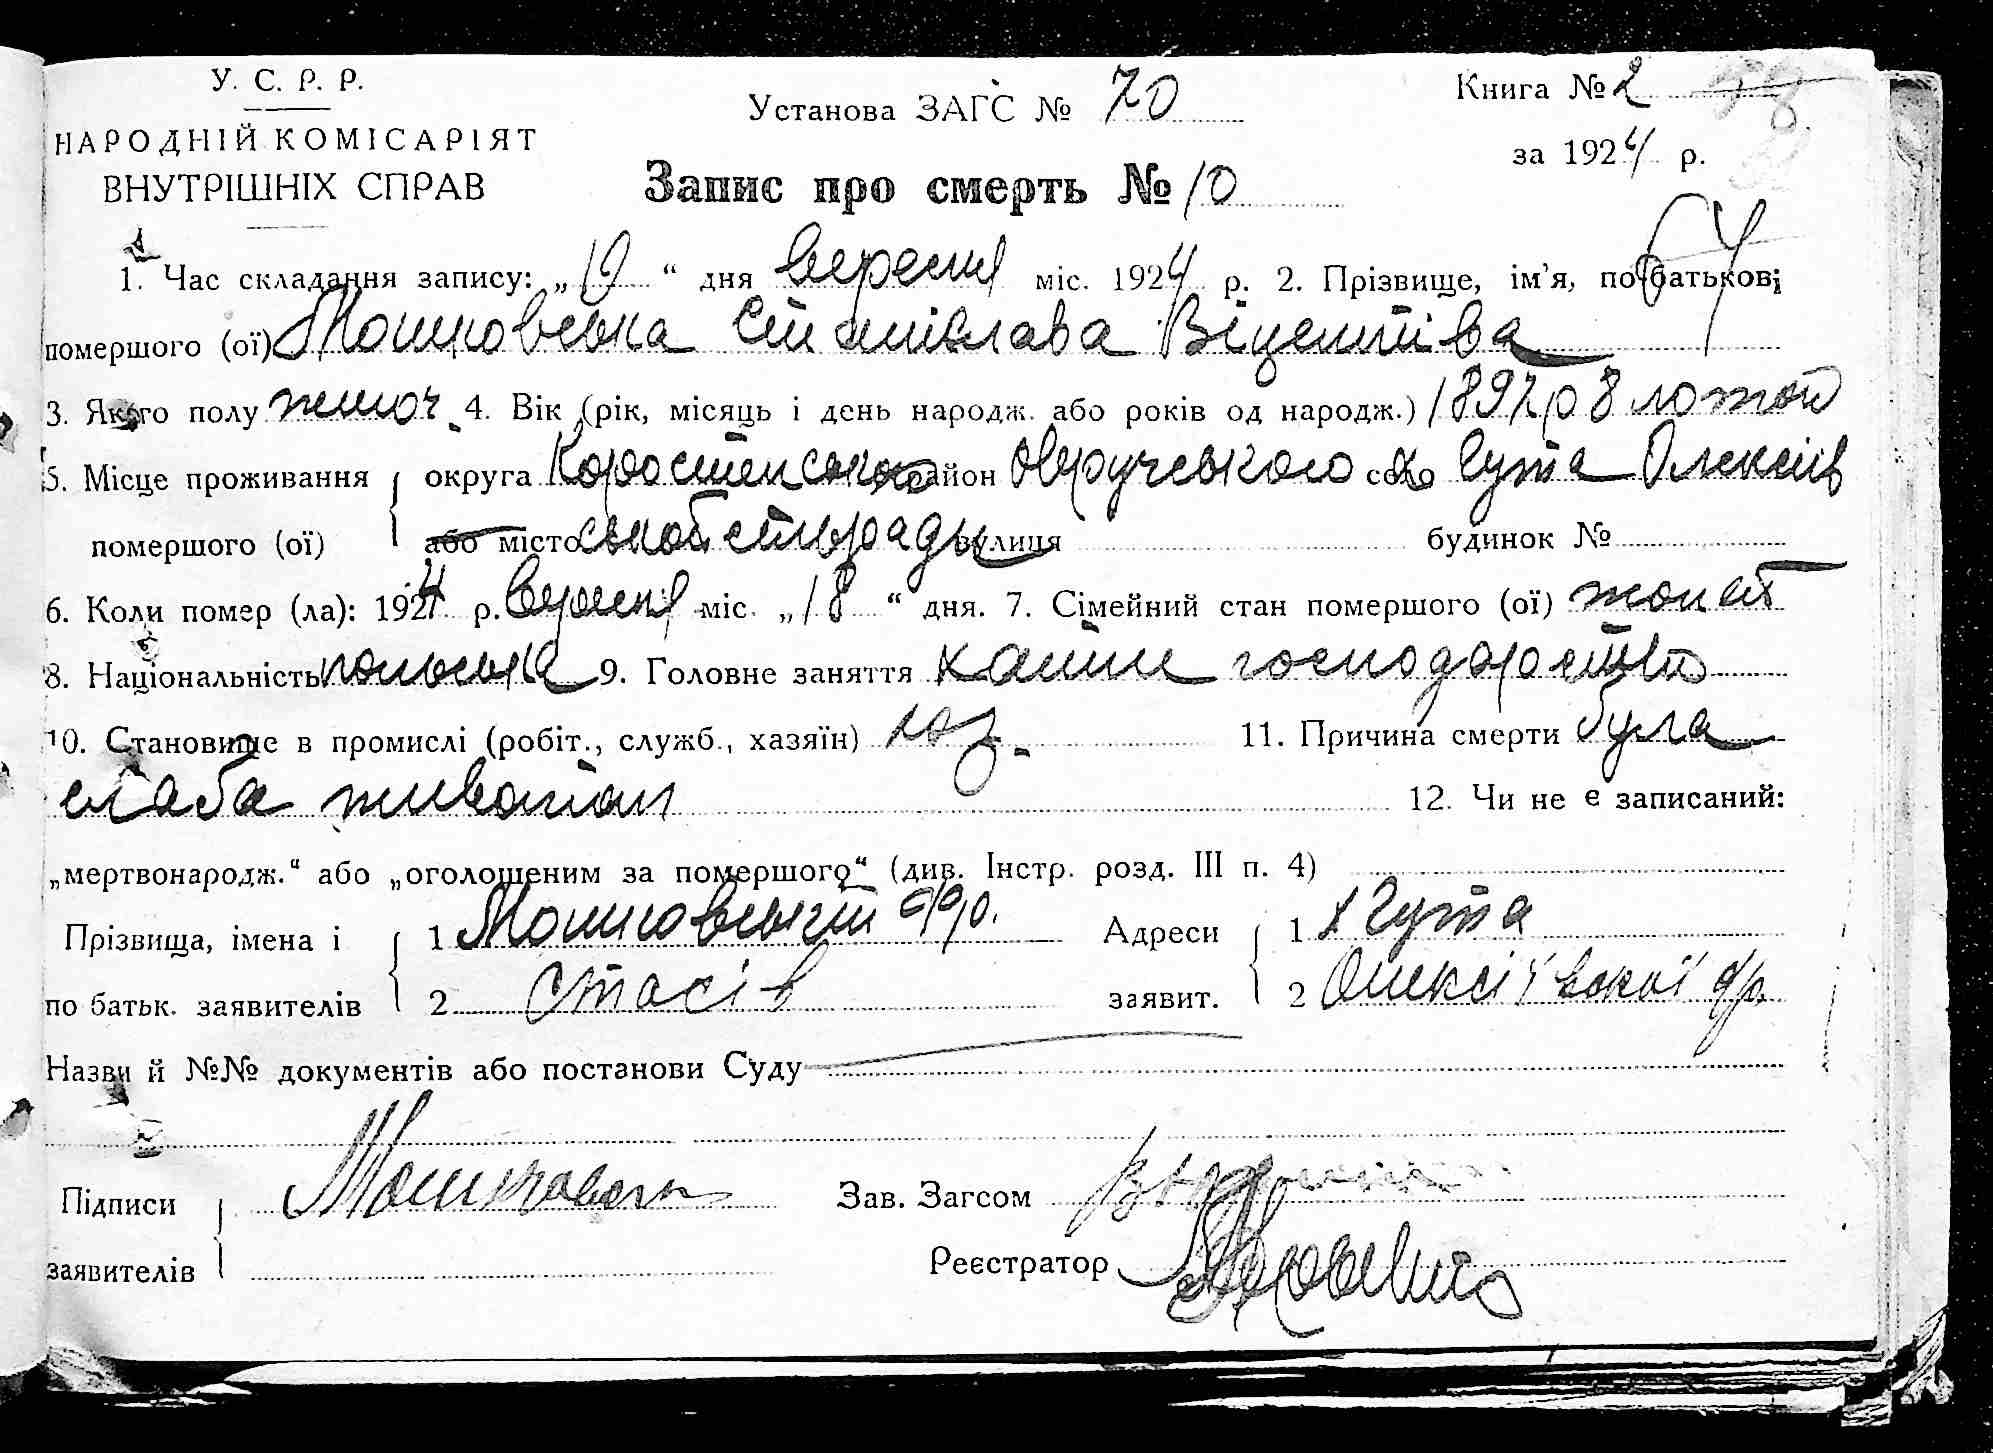 У. С. Р. Р.
НАРОДНІЙ КОМІСАРІЯТ
ВНУТРІШНІХ СПРАВ
Установа ЗАГС № 70
Книга № 2
за 1924 р.
Запис про смерть № 10
1. Час складання запису: „19“ дня вересня міс. 1924 р. 2. Прізвище, ім'я, по батькові
помершого (ої) Станіслава Віцентіва
3. Якого полу жіноч 4. Вік (рік, місяць і день народж. або років од народж.) 1897 р 8
5. Місце проживання округа Коростенського район Овруцького Гута Олексіїв
помершого (ої) або місто ської сільради вулиця будинок №
6. Коли помер (ла): 1924 р. вересня міс. „18“ дня. 7. Сімейний стан помершого (ої)
8. Національність польська 9. Головне заняття хатне господарство
10. Становище в промислі (робіт., служб., хазяїн) хаз. 11. Причина смерти була
слаба животом 12. Чи не є записаний:
„мертвонародж.“ або „оголошеним за помершого“ (див. Інстр. розд. III п. 4)
Прізвища, імена і 1 Адреси 1 х Гута
по батьк. заявителів 2 Стасів заявит. 2 Олексіївскої
Назви й №№ документів або постанови Суду
Підписи Зав. Загсом
заявителів Реєстратор